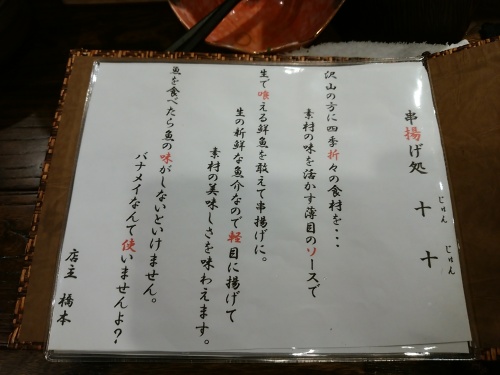 串揚げ処 十 十
じゅん じゅん
沢山の方に四季折々の食材を・・・
素材の味を活かす薄目のソースで
生で喰える鮮魚を敢えて串揚げに。
生の新鮮な魚介なので軽目に揚げて
素材の美味しさを味わえます。
魚を食べたら魚の味がしないといけません。
バナメイなんて使いませんよ?
店主 橋本